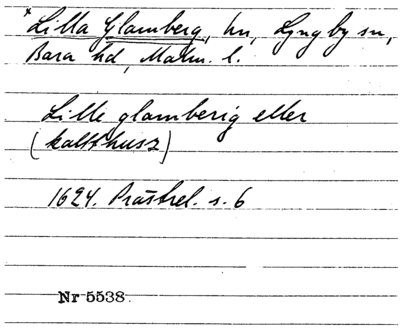 * Lilla Glamberg, hn, Lyngby sn,
Bara hd, Malm. l.
Lille glamberig eller
(kaltthusz)
1624. Prästrel. s. 6
Nr 5538.